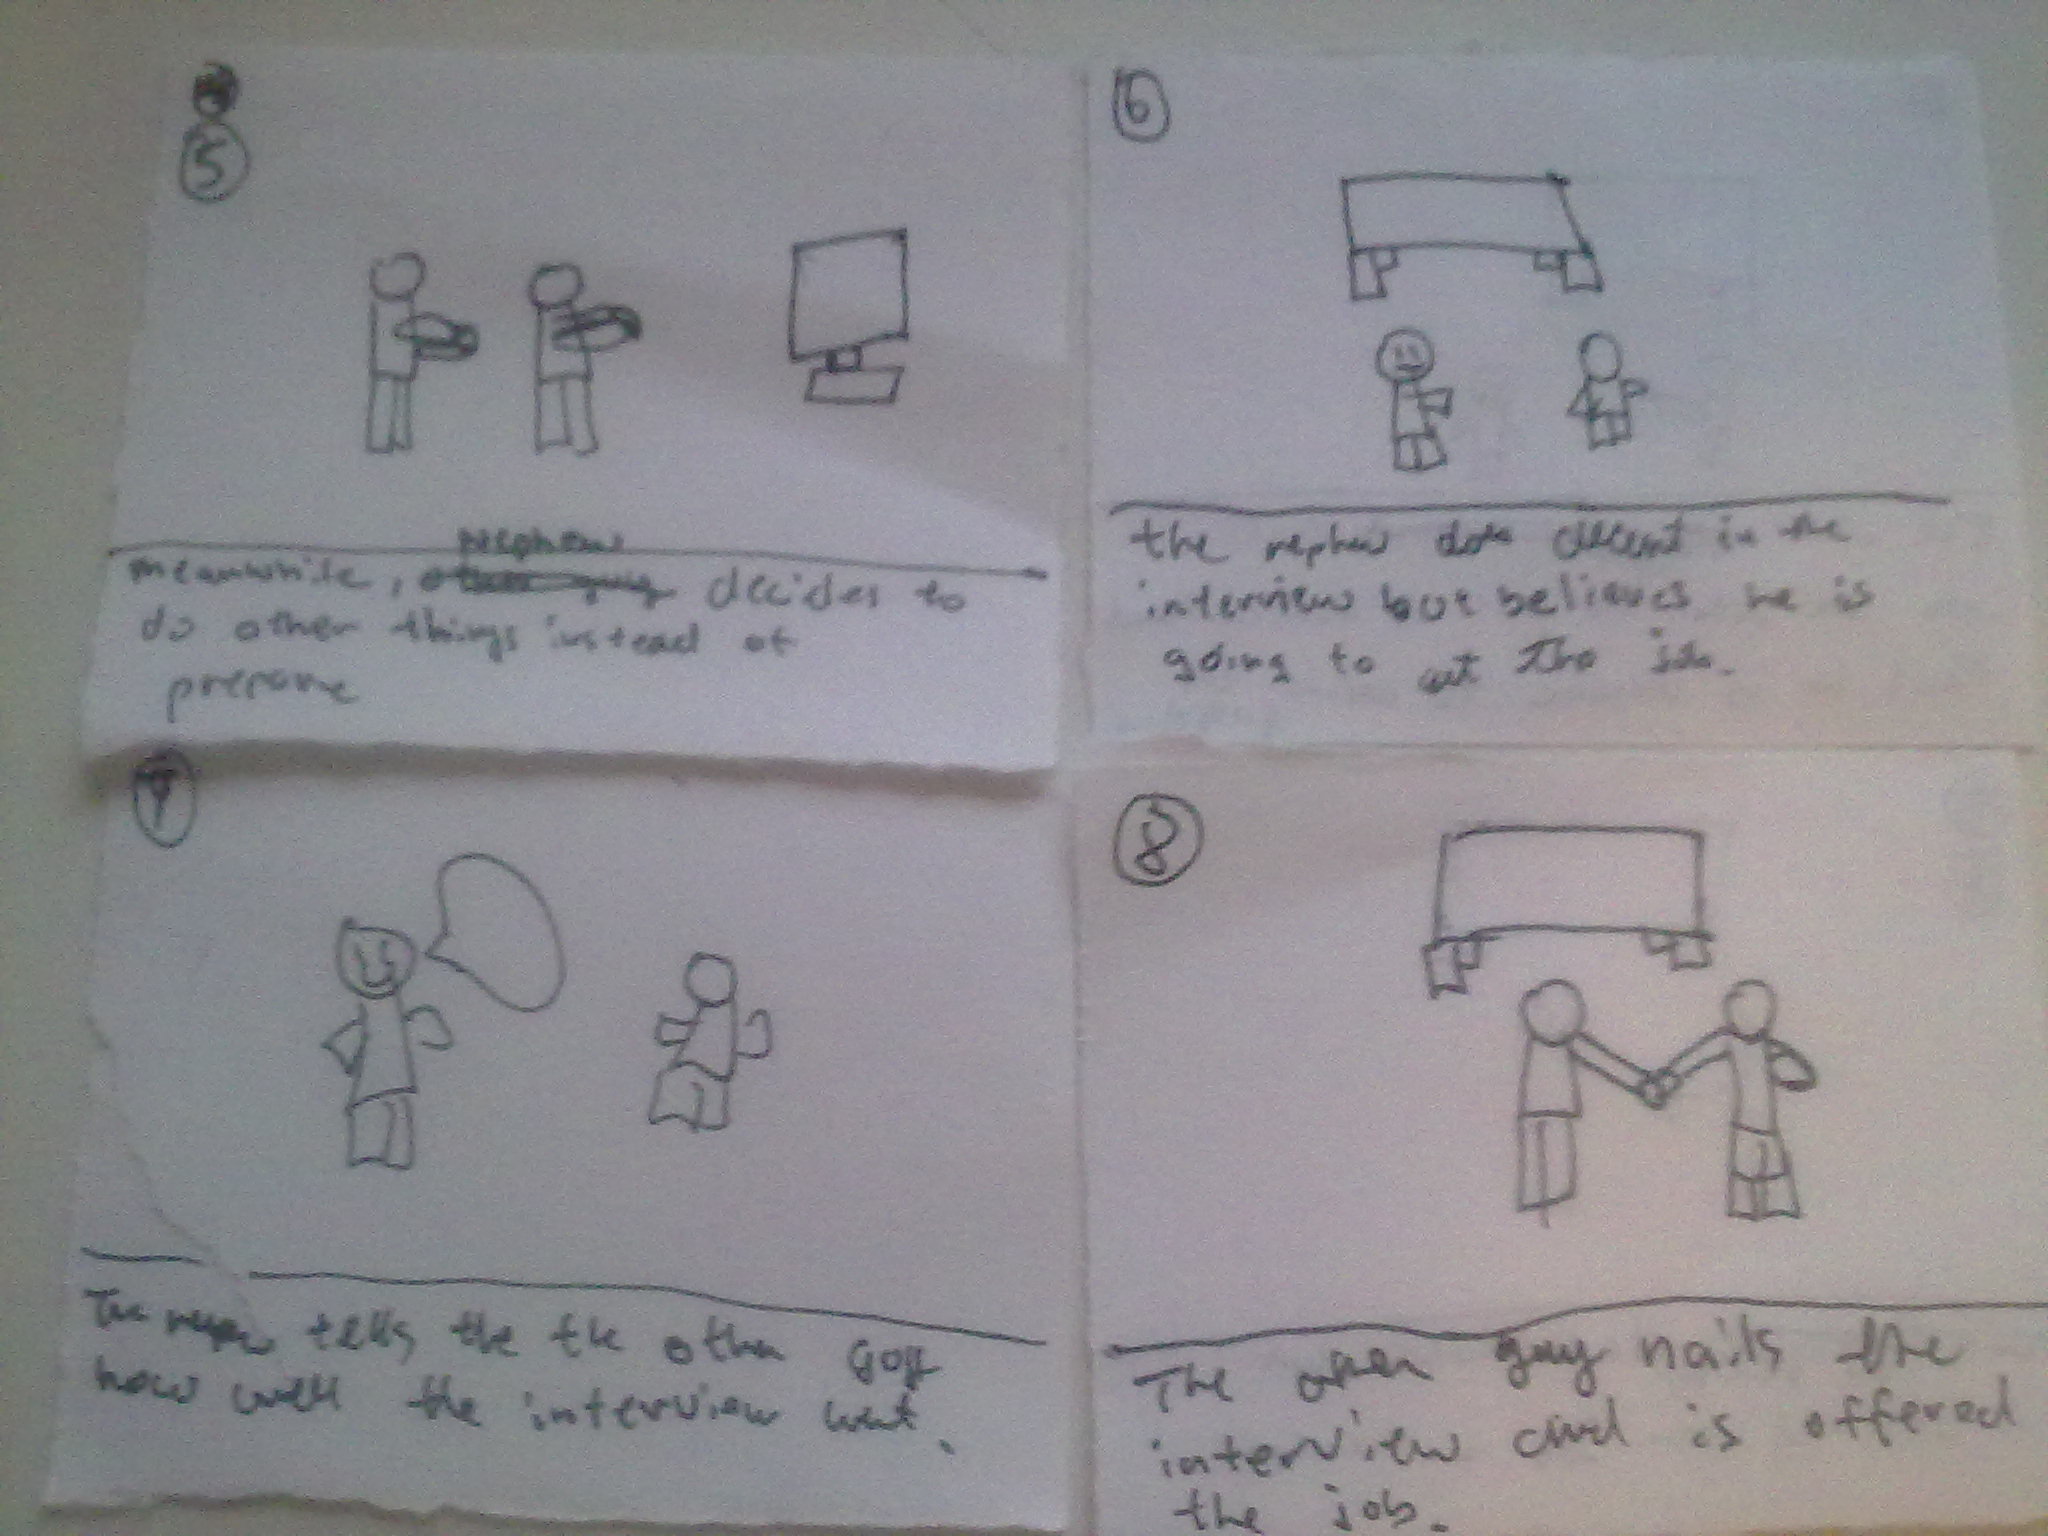 5
nephew
meanwhile, other guy decides to
do other things instead of
prepare
6
the nephew does decent in the
interview but believes he is
going to get the job.
7
The nephew tells the the other guy
how well the interview went.
8
The other guy nails the
interview and is offered
the job.